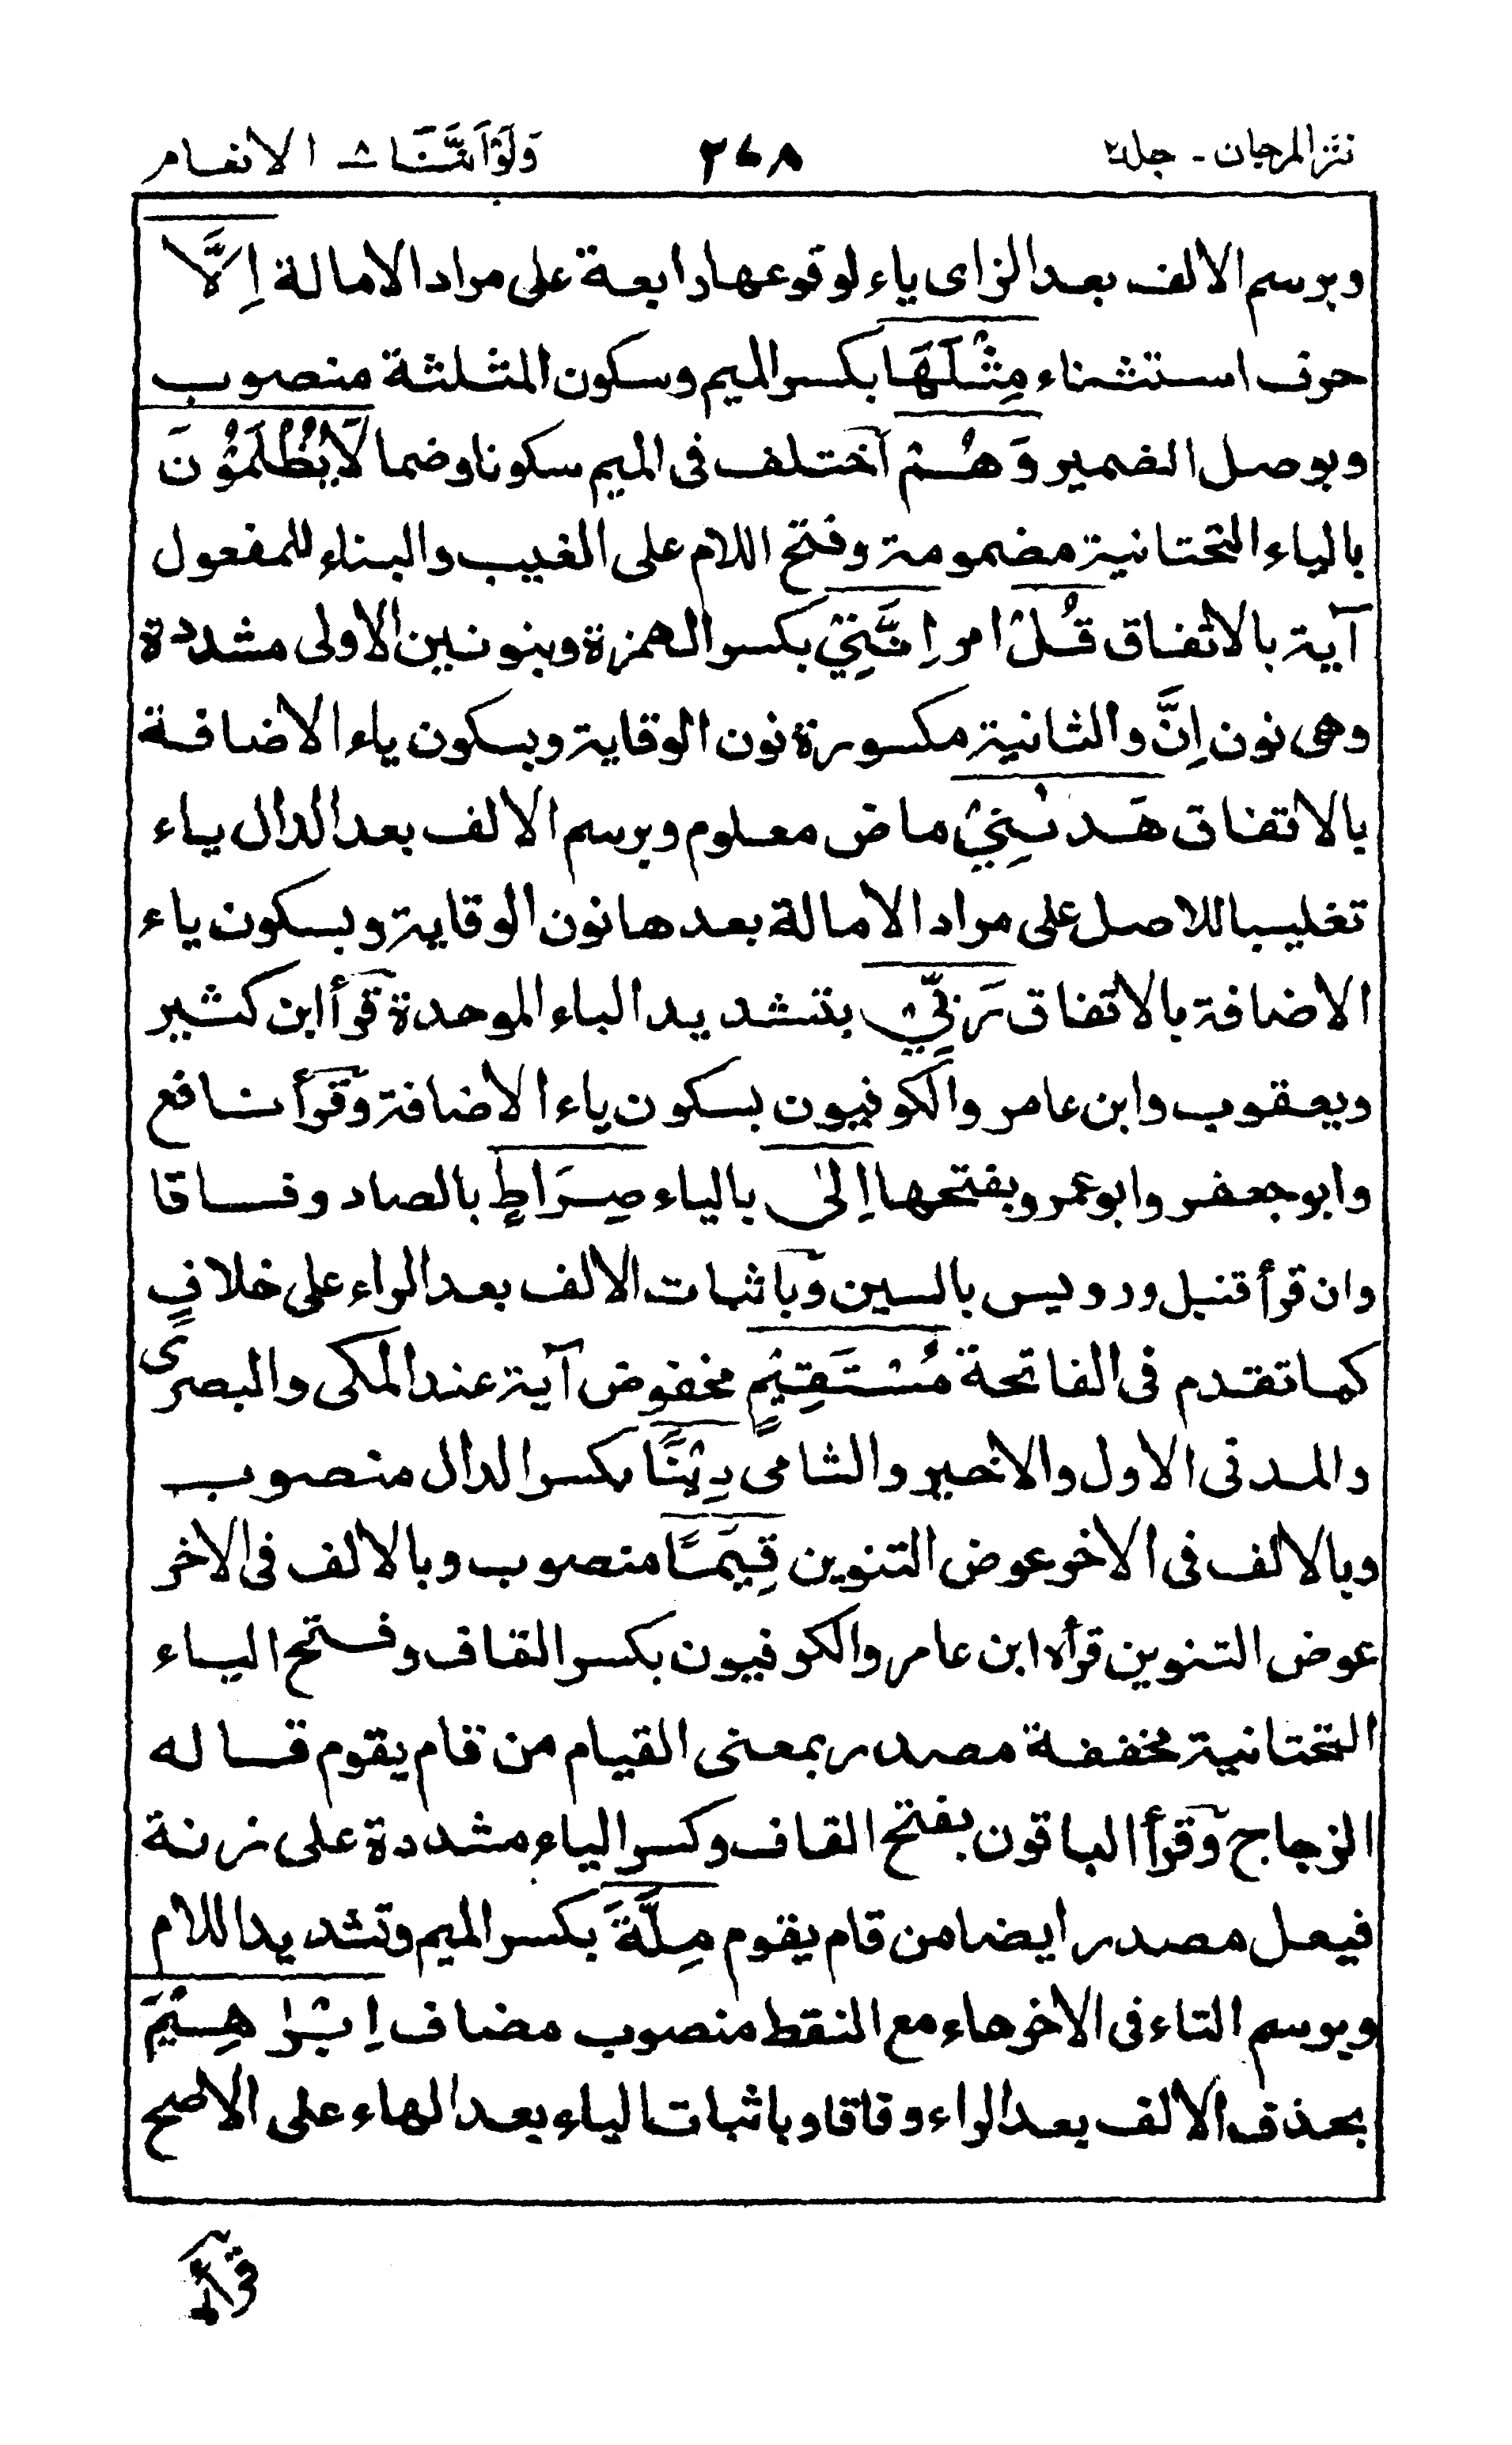 نثر المرجان - جلد٢ ٣٦٨ وَلَوْاَنَّنَا ٨ الانعام
وبرسم الالف بعد الزاى ياء لوقوعها رابعة على مراد الامالة اِلَّا
حرف استثناء مِثْلَهَا بكسر الميم وسكون المثلثة منصوب
وبوصل الضمير وَهُمْ اختلف فى الميم سكونا وضما لَايُظْلَمُوْنَ
بالياء التحتانية مضمومة وفتح اللام على الغيب والبناء للمفعول
آية بالاتفاق قُلْ امر اِنَّنِيْ بكسر الهمزة وبنونين الاولى مشددة
وهى نون اِنَّ والثانية مكسورة نون الوقاية وبسكون ياء الاضافة
بالاتفاق هَدٰىنِيْ ماض معلوم وبرسم الالف بعد الدال ياء
تغليبا للاصل على مراد الامالة بعدها نون الوقاية وبسكون ياء
الاضافة بالاتفاق رَبِّيْ بتشديد الباء الموحدة قرأ ابن كثير
ويعقوب وابن عامر والكوفيون بسكون ياء الاضافة وقرأ نافع
وابو جعفر وابو عمرو بفتحها اِلىٰ بالياء صِرَاطٍ بالصاد وفاقا
وان قرأ قنبل ورويس بالسين وباثبات الالف بعد الراء على خلافٍ
كما تقدم فى الفاتحة مُسْتَقِيْمٍ مخفوض آية عند المكى والبصرى
والمدنى الاول والاخير والشامى دِيْنًا بكسر الدال منصوب
وبالالف فى الاخر عوض التنوين قِيَمًا منصوب وبالالف فى الاخر
عوض التنوين قرأه ابن عامر والكوفيون بكسر القاف وفتح الياء
التحتانية مخففة مصدر بمعنى القيام من قام يقوم قاله
الزجاج وقرأ الباقون بفتح القاف وكسر الياء مشددة على زنة
فيعل مصدر ايضا من قام يقوم مِلَّةَ بكسر الميم وتشديد اللام
وبرسم التاء فى الاخر هاء مع النقط منصوب مضاف اِبْرٰهِيْمَ
بحذف الالف بعد الراء وفاقا وباثبات الياء بعد الهاء على الاصح
قرأ